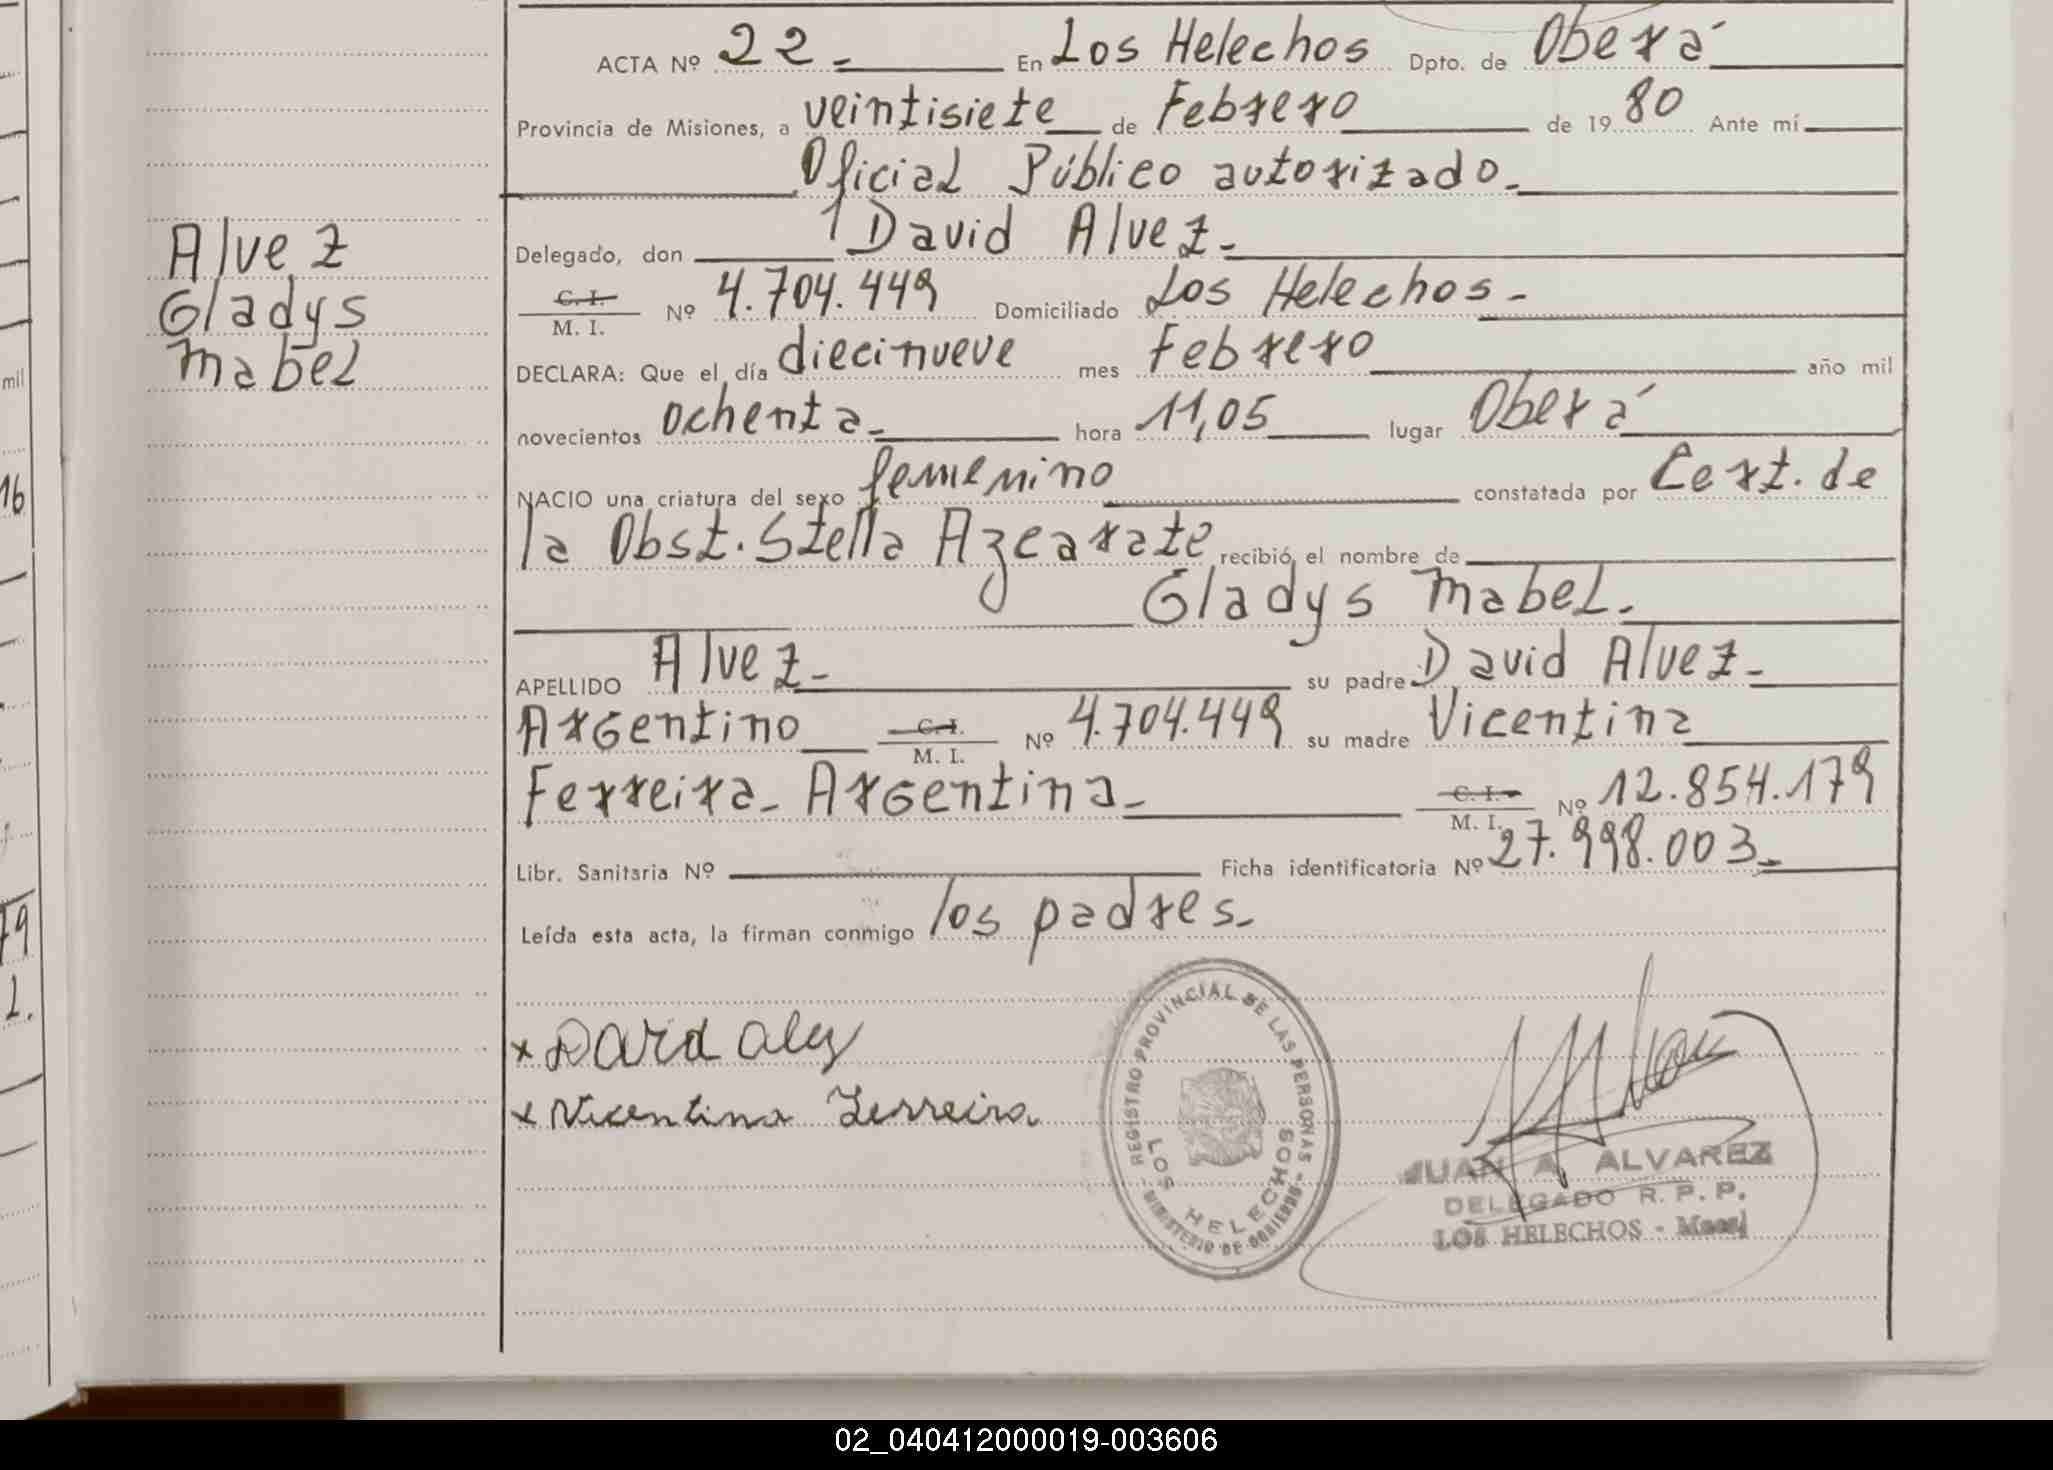 ACTA Nº 22.- En Los Helechos Dpto. de Oberá
Provincia de Misiones, a veintisiete de Febrero de 1980 Ante mí
Oficial Público autorizado.-
Delegado, don David Alvez.-
C. I. / M. I. Nº 4.704.449 Domiciliado Los Helechos.-
DECLARA: Que el día diecinueve mes Febrero año mil
novecientos ochenta.- hora 11,05 lugar Oberá
NACIO una criatura del sexo femenino constatada por Cert. de
la Obst. Stella Azcarate recibió el nombre de
Gladys Mabel.-
APELLIDO Alvez.- su padre David Alvez.-
Argentino C. I. / M. I. Nº 4.704.449 su madre Vicentina
Ferreira.- Argentina.- C. I. / M. I. Nº 12.854.179
Libr. Sanitaria Nº Ficha identificatoria Nº 27.998.003.-
Leída esta acta, la firman conmigo los padres.-
Alvez
Gladys
Mabel
mil
16
79
x David
x Vicentina Ferreira
REGISTRO PROVINCIAL DE LAS PERSONAS
- MINISTERIO DE GOBIERNO -
LOS HELECHOS
JUAN A. ALVAREZ
DELEGADO R. P. P.
LOS HELECHOS -
02_040412000019-003606